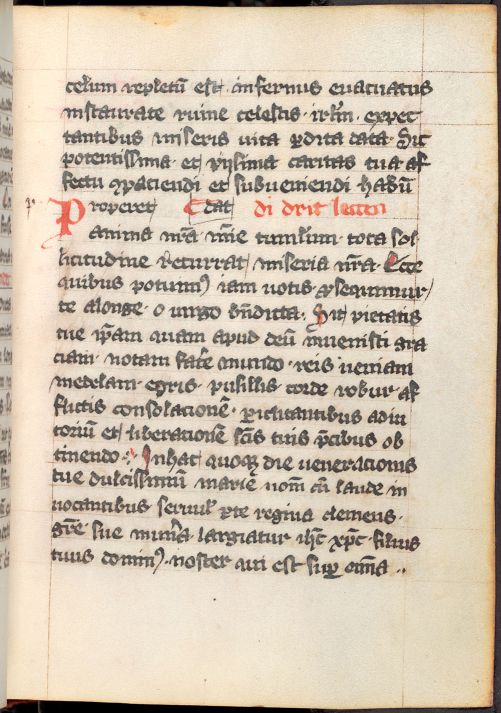 celum repletū est infernus euacuatus
instaurate ruine celestis · irl̄m · expec
tantibus miseris uita ꝑdita data · Sic
potentissima · et pijsima caritas tua af
fectu ꝯpaciendi et subueniendi habūd
Properet Etat di drit leccen
anima nr̄a · nīe tumulum · tota sol
licitudine Recurrat miseria nr̄a · Ecce
quibus potumꝰ iam uotis ꝓsequimur
te alonge · o uirgo bn̄dicta · Sit pietatis
tue ip̄am quam apud deū inuenisti gra
ciam · notam face mundo · reis ueniam
medelam · egris · pusillis corde robur · af
flictis consolacionē · ꝑiclitantibus adiu
toriū et liberacionē sc̄is tuis p̄cibus ob
tinendo · In hac quoqꝫ die ueneracionis
tue dulcissimū marie nom̄ cū laude in
uocantibus seruul ꝑ te regina clemens ·
gr̄e sue mun̄a largiatur ih̄c xp̄c · filius
tuus dominꝰ · noster qui est sup̄ om̄ia ··